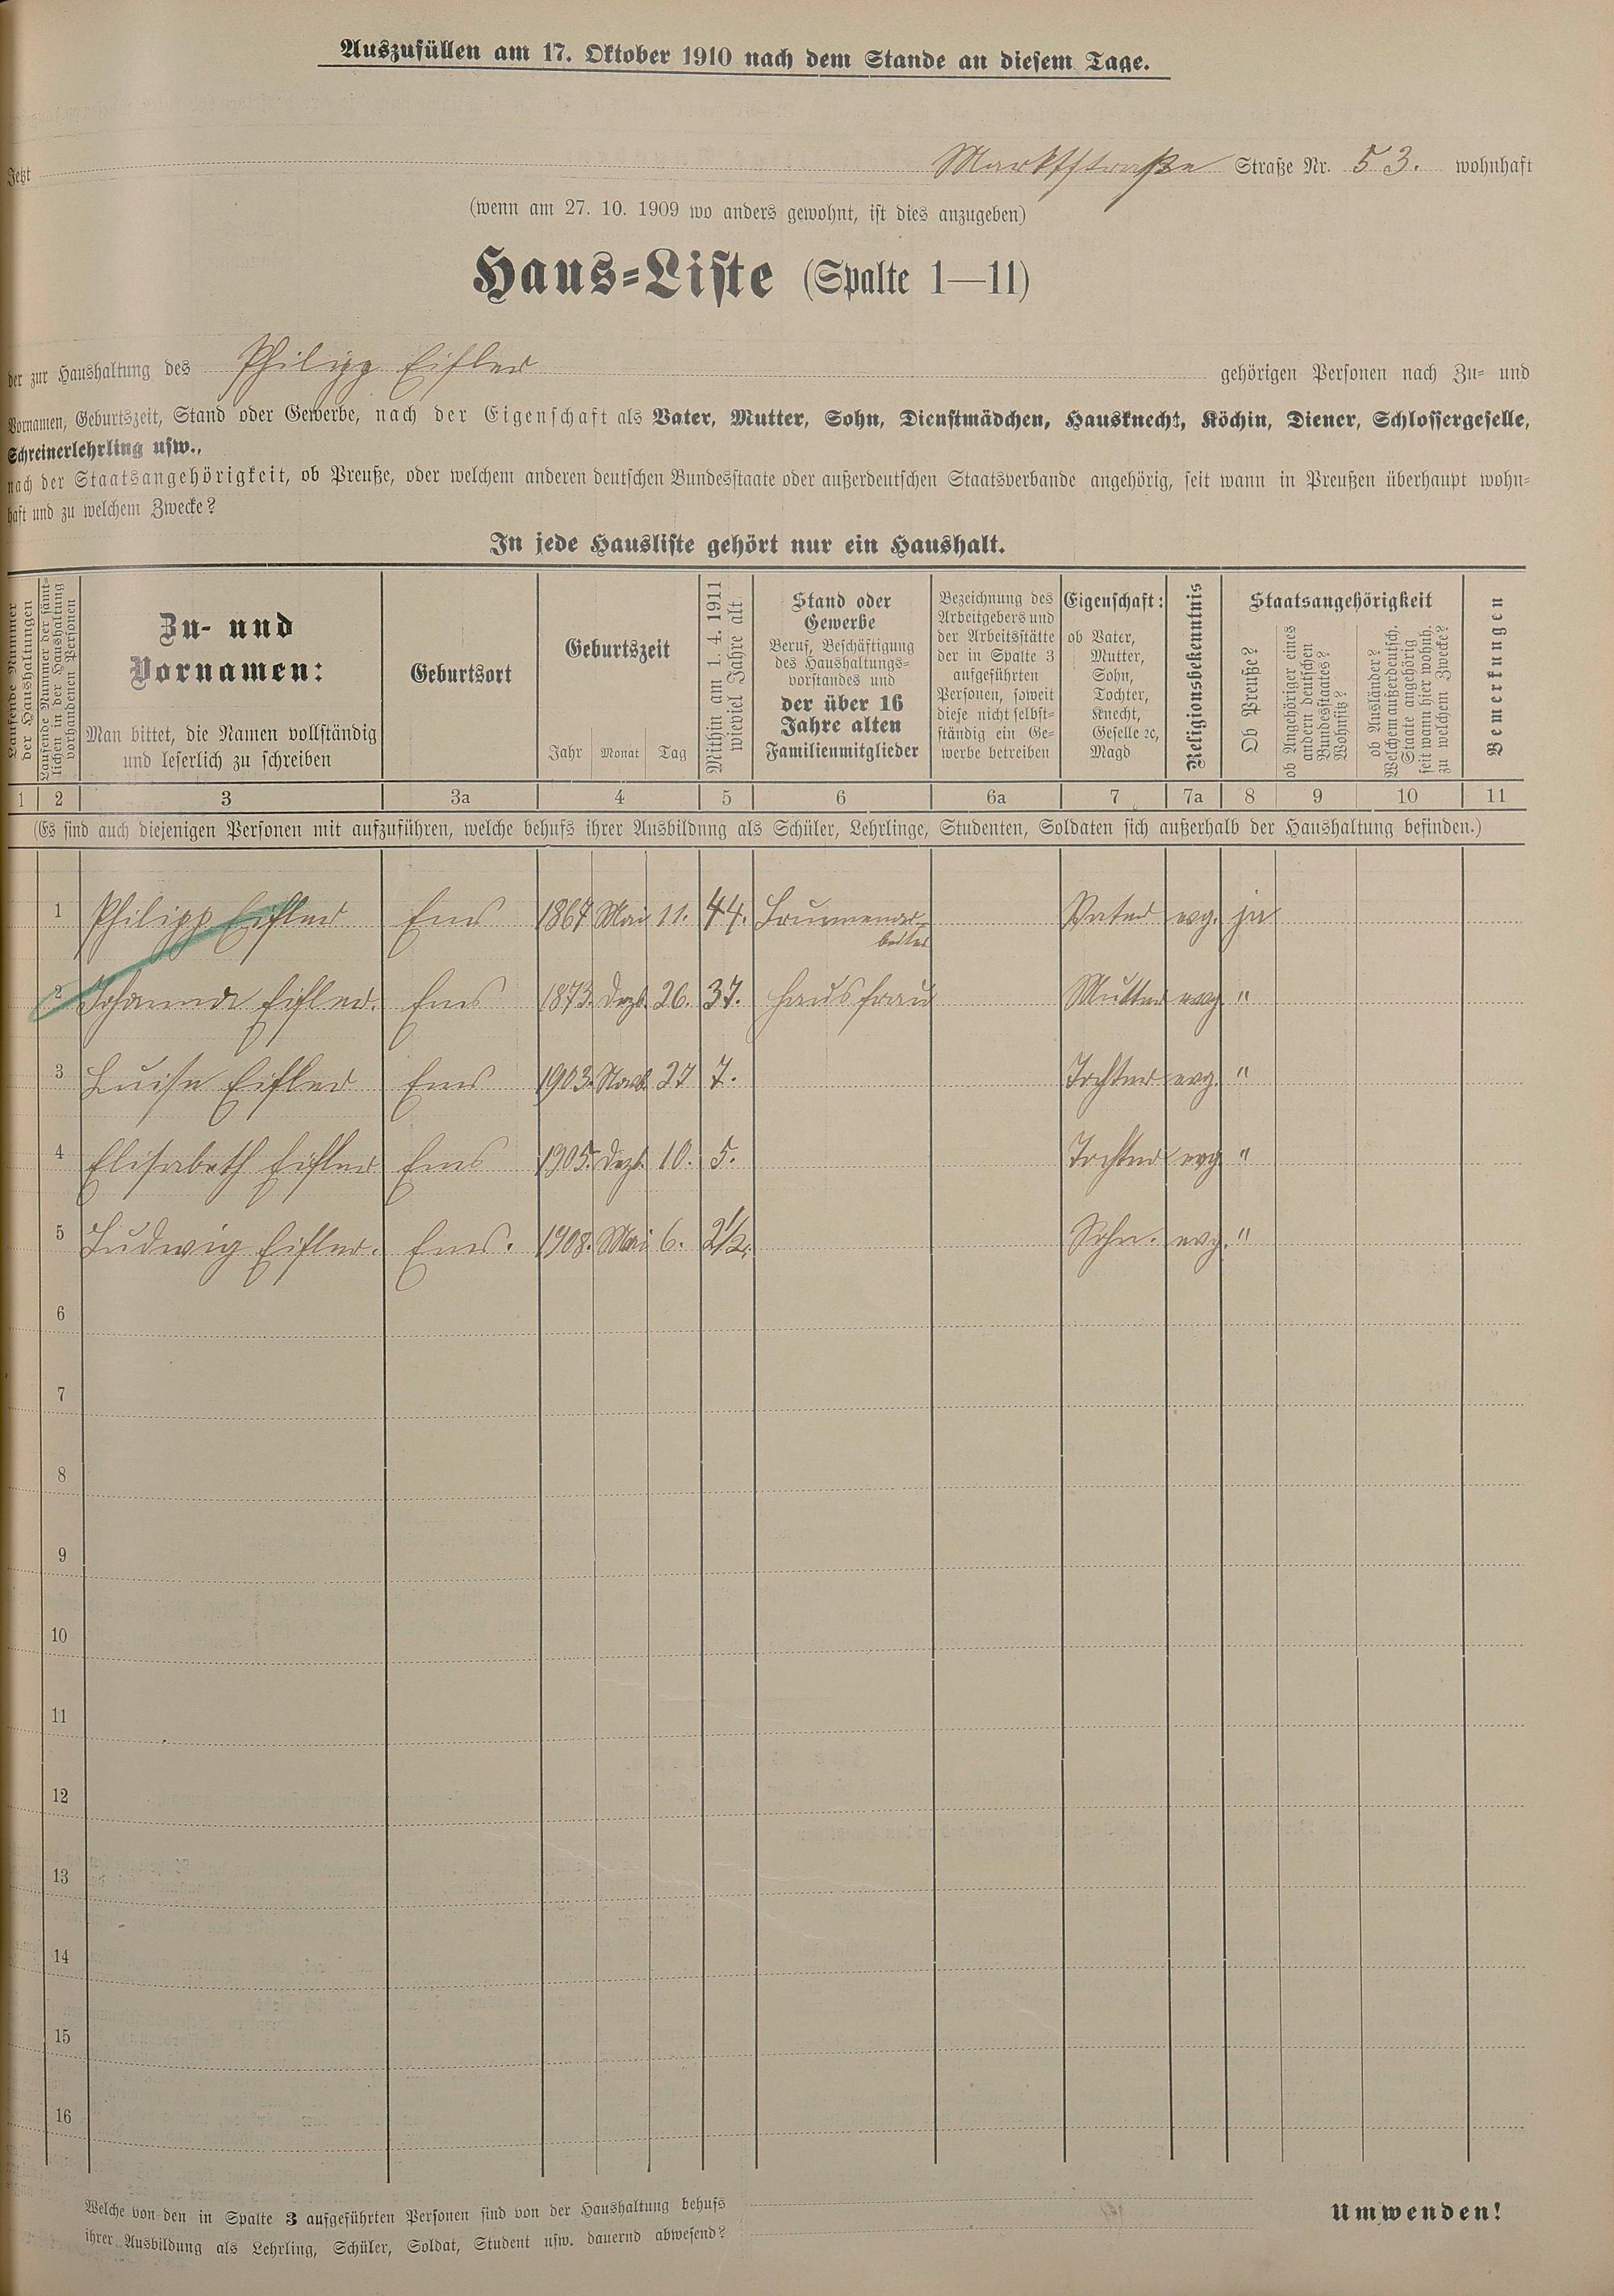 Auszufüllen am 17. Oktober 1910 nach dem Stande an diesem Tage.
Jetzt Marktstraße Straße Nr. 53. wohnhaft
(wenn am 27. 10. 1909 wo anders gewohnt, ist dies anzugeben)
Haus-Liste (Spalte 1—11)
der zur Haushaltung des Philipp Eifler gehörigen Personen nach Zu- und
Vornamen, Geburtszeit, Stand oder Gewerbe, nach der Eigenschaft als Vater, Mutter, Sohn, Dienstmädchen, Hausknecht, Köchin, Diener, Schlossergeselle,
Schreinerlehrling usw.,
nach der Staatsangehörigkeit, ob Preuße, oder welchem anderen deutschen Bundesstaate oder außerdeutschen Staatsverbande angehörig, seit wann in Preußen überhaupt wohn-
haft und zu welchem Zwecke?
In jede Hausliste gehört nur ein Haushalt.
Laufende Nummer
der Haushaltungen
Laufende Nummer der sämt-
lichen in der Haushaltung
vorhandenen Personen
Zu- und
Vornamen:
Man bittet, die Namen vollständig
und leserlich zu schreiben
Geburtsort
Geburtszeit
Jahr Monat Tag
Mithin am 1. 4. 1911
wieviel Jahre alt
Stand oder
Gewerbe
Beruf, Beschäftigung
des Haushaltungs-
vorstandes und
der über 16
Jahre alten
Familienmitglieder
Bezeichnung des
Arbeitgebers und
der Arbeitsstätte
der in Spalte 3
aufgeführten
Personen, soweit
diese nicht selbst-
ständig ein Ge-
werbe betreiben
Eigenschaft:
ob Vater,
Mutter,
Sohn,
Tochter,
Knecht,
Geselle ꝛc,
Magd
Religionsbekenntnis
Staatsangehörigkeit
Ob Preuße?
ob Angehöriger eines
andern deutschen
Bundesstaates?
Wohnsitz?
ob Ausländer?
Welchem außerdeutsch.
Staate angehörig
seit wann hier wohnh.
zu welchem Zwecke?
Bemerkungen
1 2 3 3a 4 5 6 6a 7 7a 8 9 10 11
(Es sind auch diejenigen Personen mit aufzuführen, welche behufs ihrer Ausbildung als Schüler, Lehrlinge, Studenten, Soldaten sich außerhalb der Haushaltung befinden.)
1 Philipp Eifler Ems 1867 Mai 11. 44. Brunnenar- Vater evg. ja
beiter
2 Johanna Eifler. Ems 1873. Dezb. 26. 37. Hausfrau Mutter evg. "
3 Luise Eifler Ems 1903. Novb. 27 7. Tochter evg. "
4 Elisabeth Eifler Ems 1905. Dezb. 10. 5. Tochter evg. "
5 Ludwig Eifler. Ems. 1908. Mai 6. 2½. Sohn. evg. "
6
7
8
9
10
11
12
13
14
15
16
Welche von den in Spalte 3 aufgeführten Personen sind von der Haushaltung behufs
ihrer Ausbildung als Lehrling, Schüler, Soldat, Student usw. dauernd abwesend?
Umwenden!